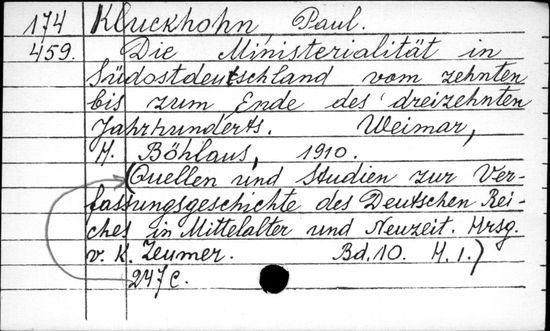 174 Kluckhohn, Paul.
459. Die Ministerialität in
Südostdeutschland vom zehnten
bis zum Ende des dreizehnten
Jahrhunderts. Weimar,
H. Böhlaus, 1910.
(Quellen und Studien zur Ver-
fassungsgeschichte des Deutschen Rei-
ches in Mittelalter und Neuzeit. Hrsg.
v. K. Zeumer. Bd. 10. H. 1.)
247 c.